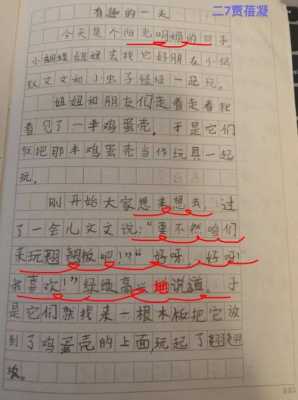 二7贾蓓凝
有趣的一天
今天是个阳光明媚的日子
小蝴蝶姐姐去找它好朋在小伙
蚁文文和小虫子经经一起玩。
姐姐和朋友们走着走着就
看见了一半鸡蛋壳。于是它们
就把那半鸡蛋壳当作玩具一起
玩。
刚开始大家想来想去,过
了一会儿文文说:“要不然咱们
来玩翘翘板吧!”“好呀,好呀!
我喜欢!”经经高兴地说道。于
是它们就找来一根木板把它放
到了鸡蛋壳的上面,玩起了翘翘
板。